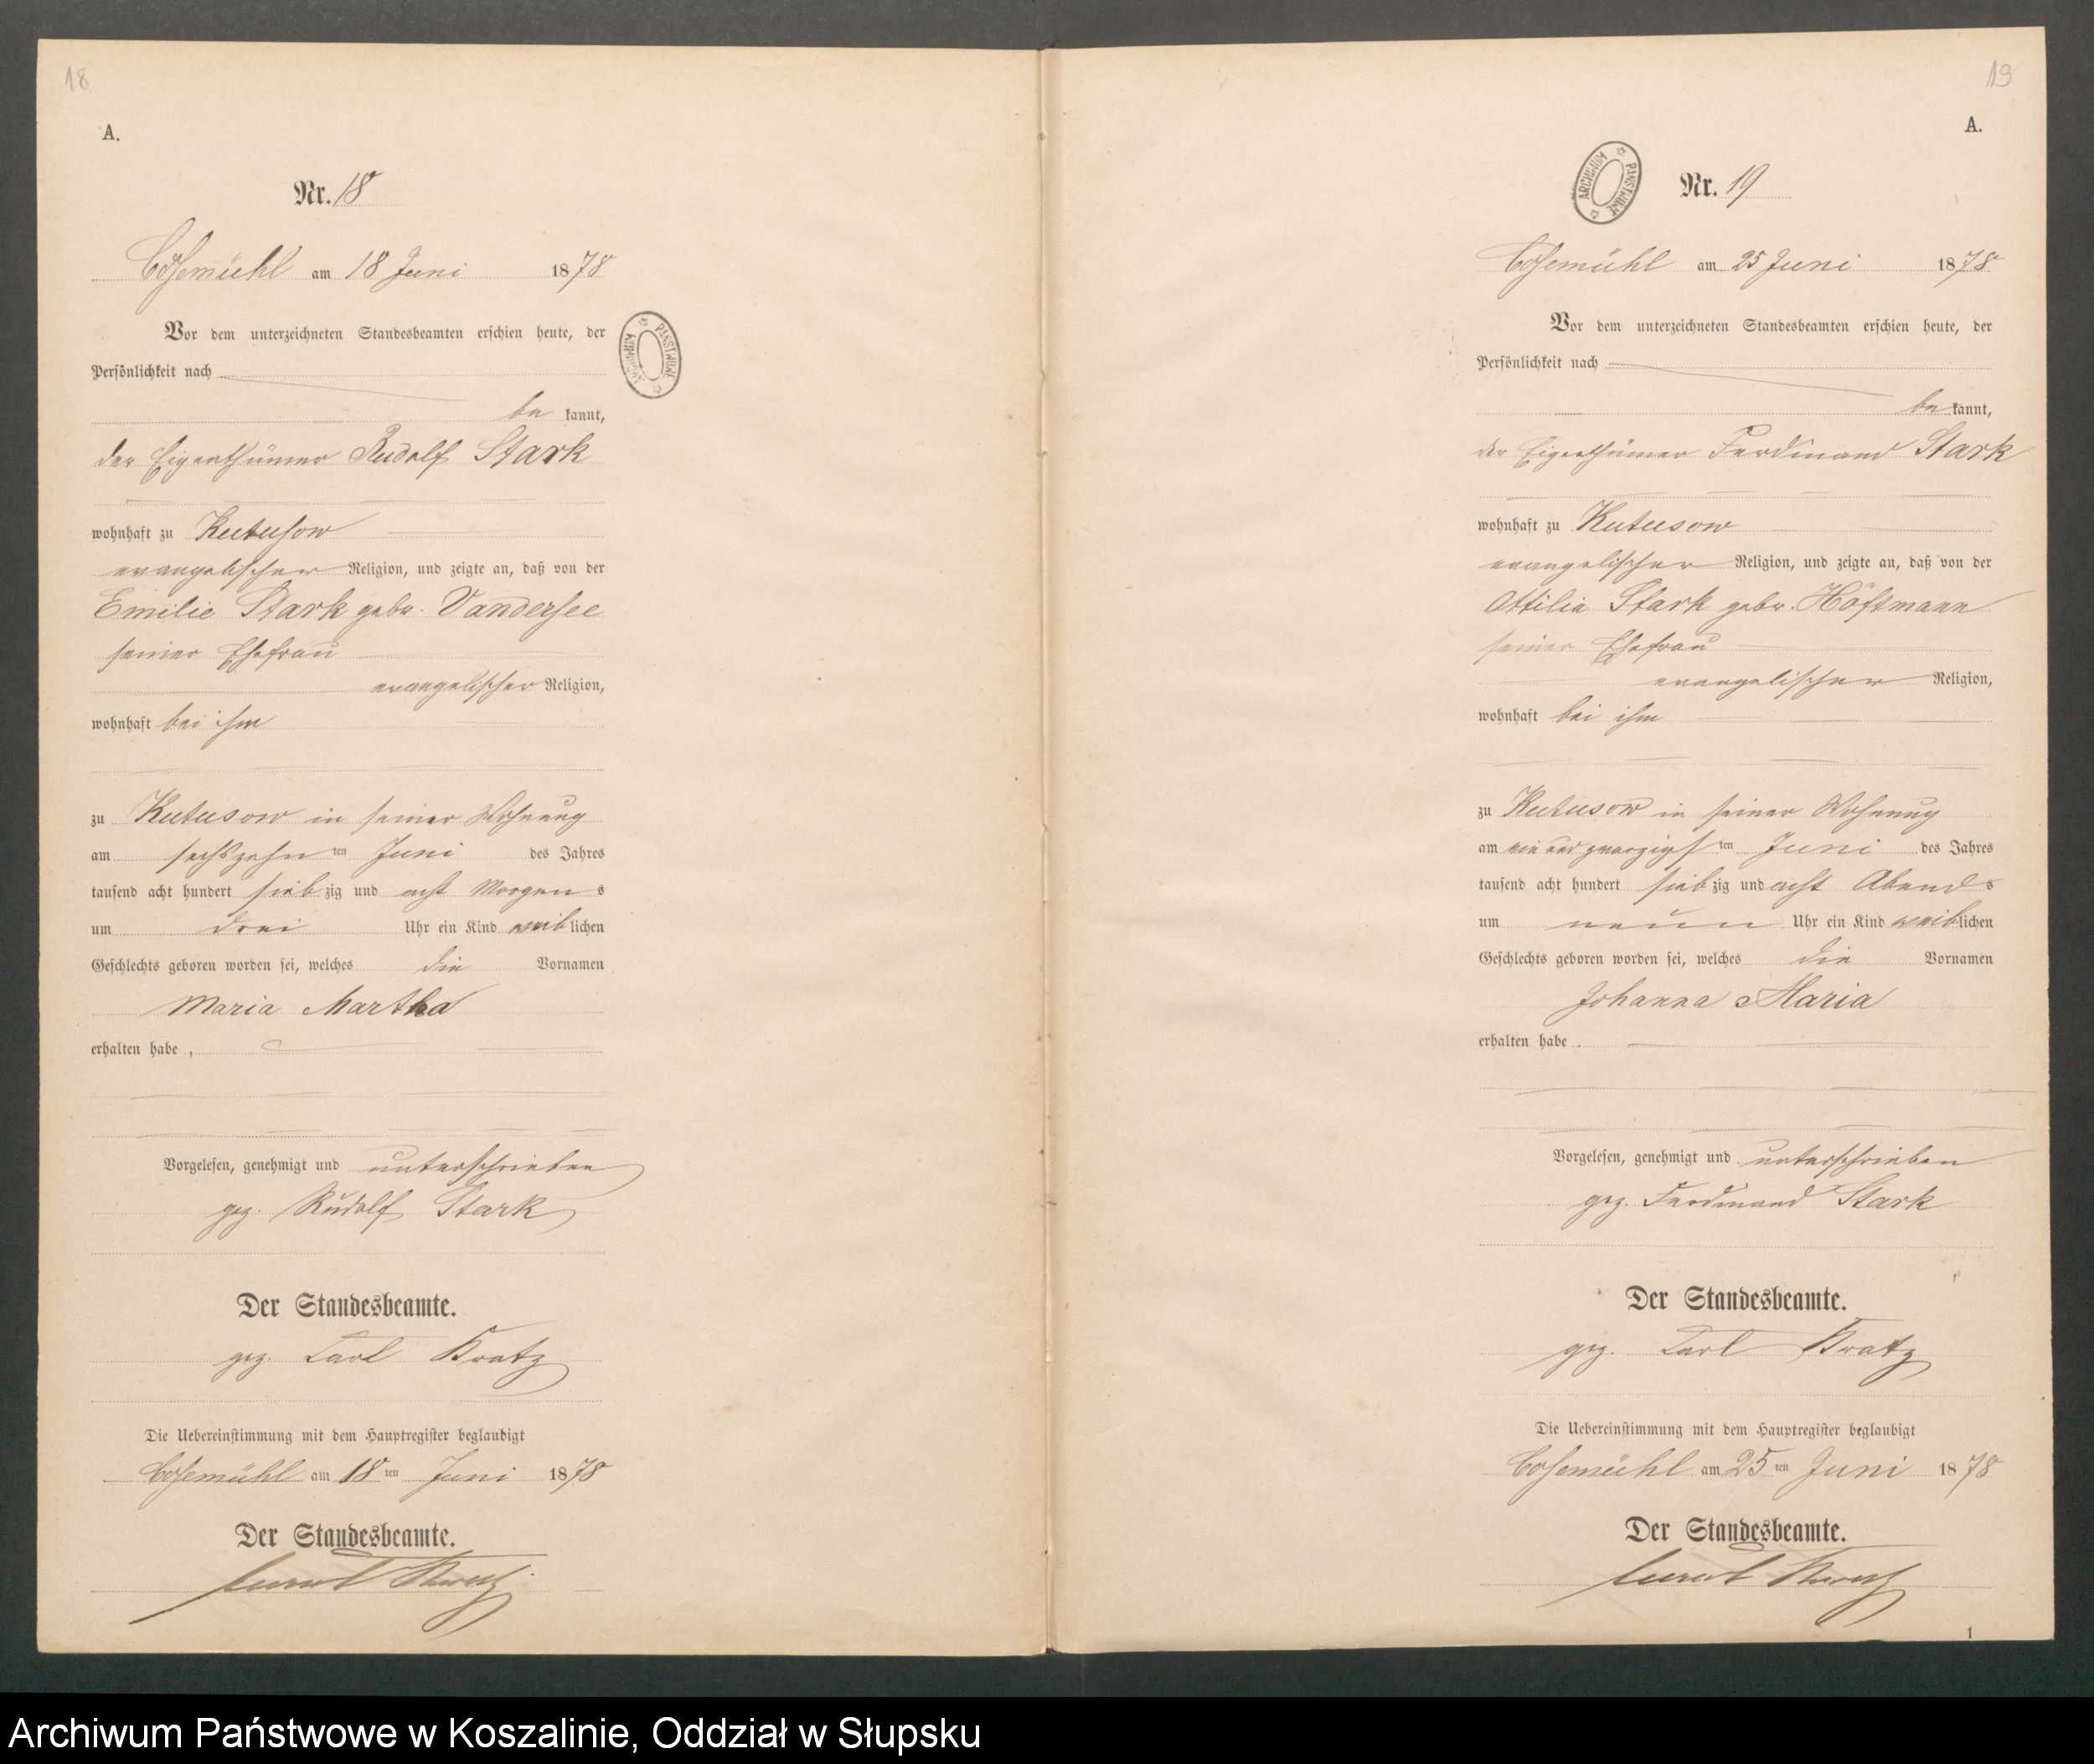 18
A.
Nr. 18
Cosemühl am 18 Juni 1878
Vor dem unterzeichneten Standesbeamten erschien heute, der
Persönlichkeit nach
be kannt,
der Eigenthümer Rudolf Stark
wohnhaft zu Kutusow
evangelischer Religion, und zeigte an, daß von der
Emilie Stark gebr. Vandersee
seiner Ehefrau
evangelischer Religion,
wohnhaft bei ihm
zu Kutusow in seiner Wohnung
am sechszehn ten Juni des Jahres
tausend acht hundert siebzig und acht Morgens
um drei Uhr ein Kind weiblichen
Geschlechts geboren worden sei, welches die Vornamen
Maria Martha
erhalten habe.
Vorgelesen, genehmigt und unterschrieben
gez. Rudolf Stark
Der Standesbeamte.
gez. Carl Kratz
Die Uebereinstimmung mit dem Hauptregister beglaubigt
Cosemühl am 18ten Juni 1878
Der Standesbeamte.
Carl Kratz
ARCHIWUM PAŃSTWOWE
19
A.
ARCHIWUM PAŃSTWOWE
Nr. 19
Cosemühl am 25 Juni 1878
Vor dem unterzeichneten Standesbeamten erschien heute, der
Persönlichkeit nach
bekannt,
der Eigenthümer Ferdinand Stark
wohnhaft zu Kutusow
evangelischer Religion, und zeigte an, daß von der
Ottilie Stark gebr. Höftmann
seiner Ehefrau
evangelischer Religion,
wohnhaft bei ihm
zu Kutusow in seiner Wohnung
am ein und zwanzigsten Juni des Jahres
tausend acht hundert siebzig und acht Abends
um neun Uhr ein Kind weiblichen
Geschlechts geboren worden sei, welches die Vornamen
Johanna Maria
erhalten habe.
Vorgelesen, genehmigt und unterschrieben
gez. Ferdinand Stark
Der Standesbeamte.
gez. Carl Kratz
Die Uebereinstimmung mit dem Hauptregister beglaubigt
Cosemühl am 25ten Juni 1878
Der Standesbeamte.
Carl Kratz
1
Archiwum Państwowe w Koszalinie, Oddział w Słupsku